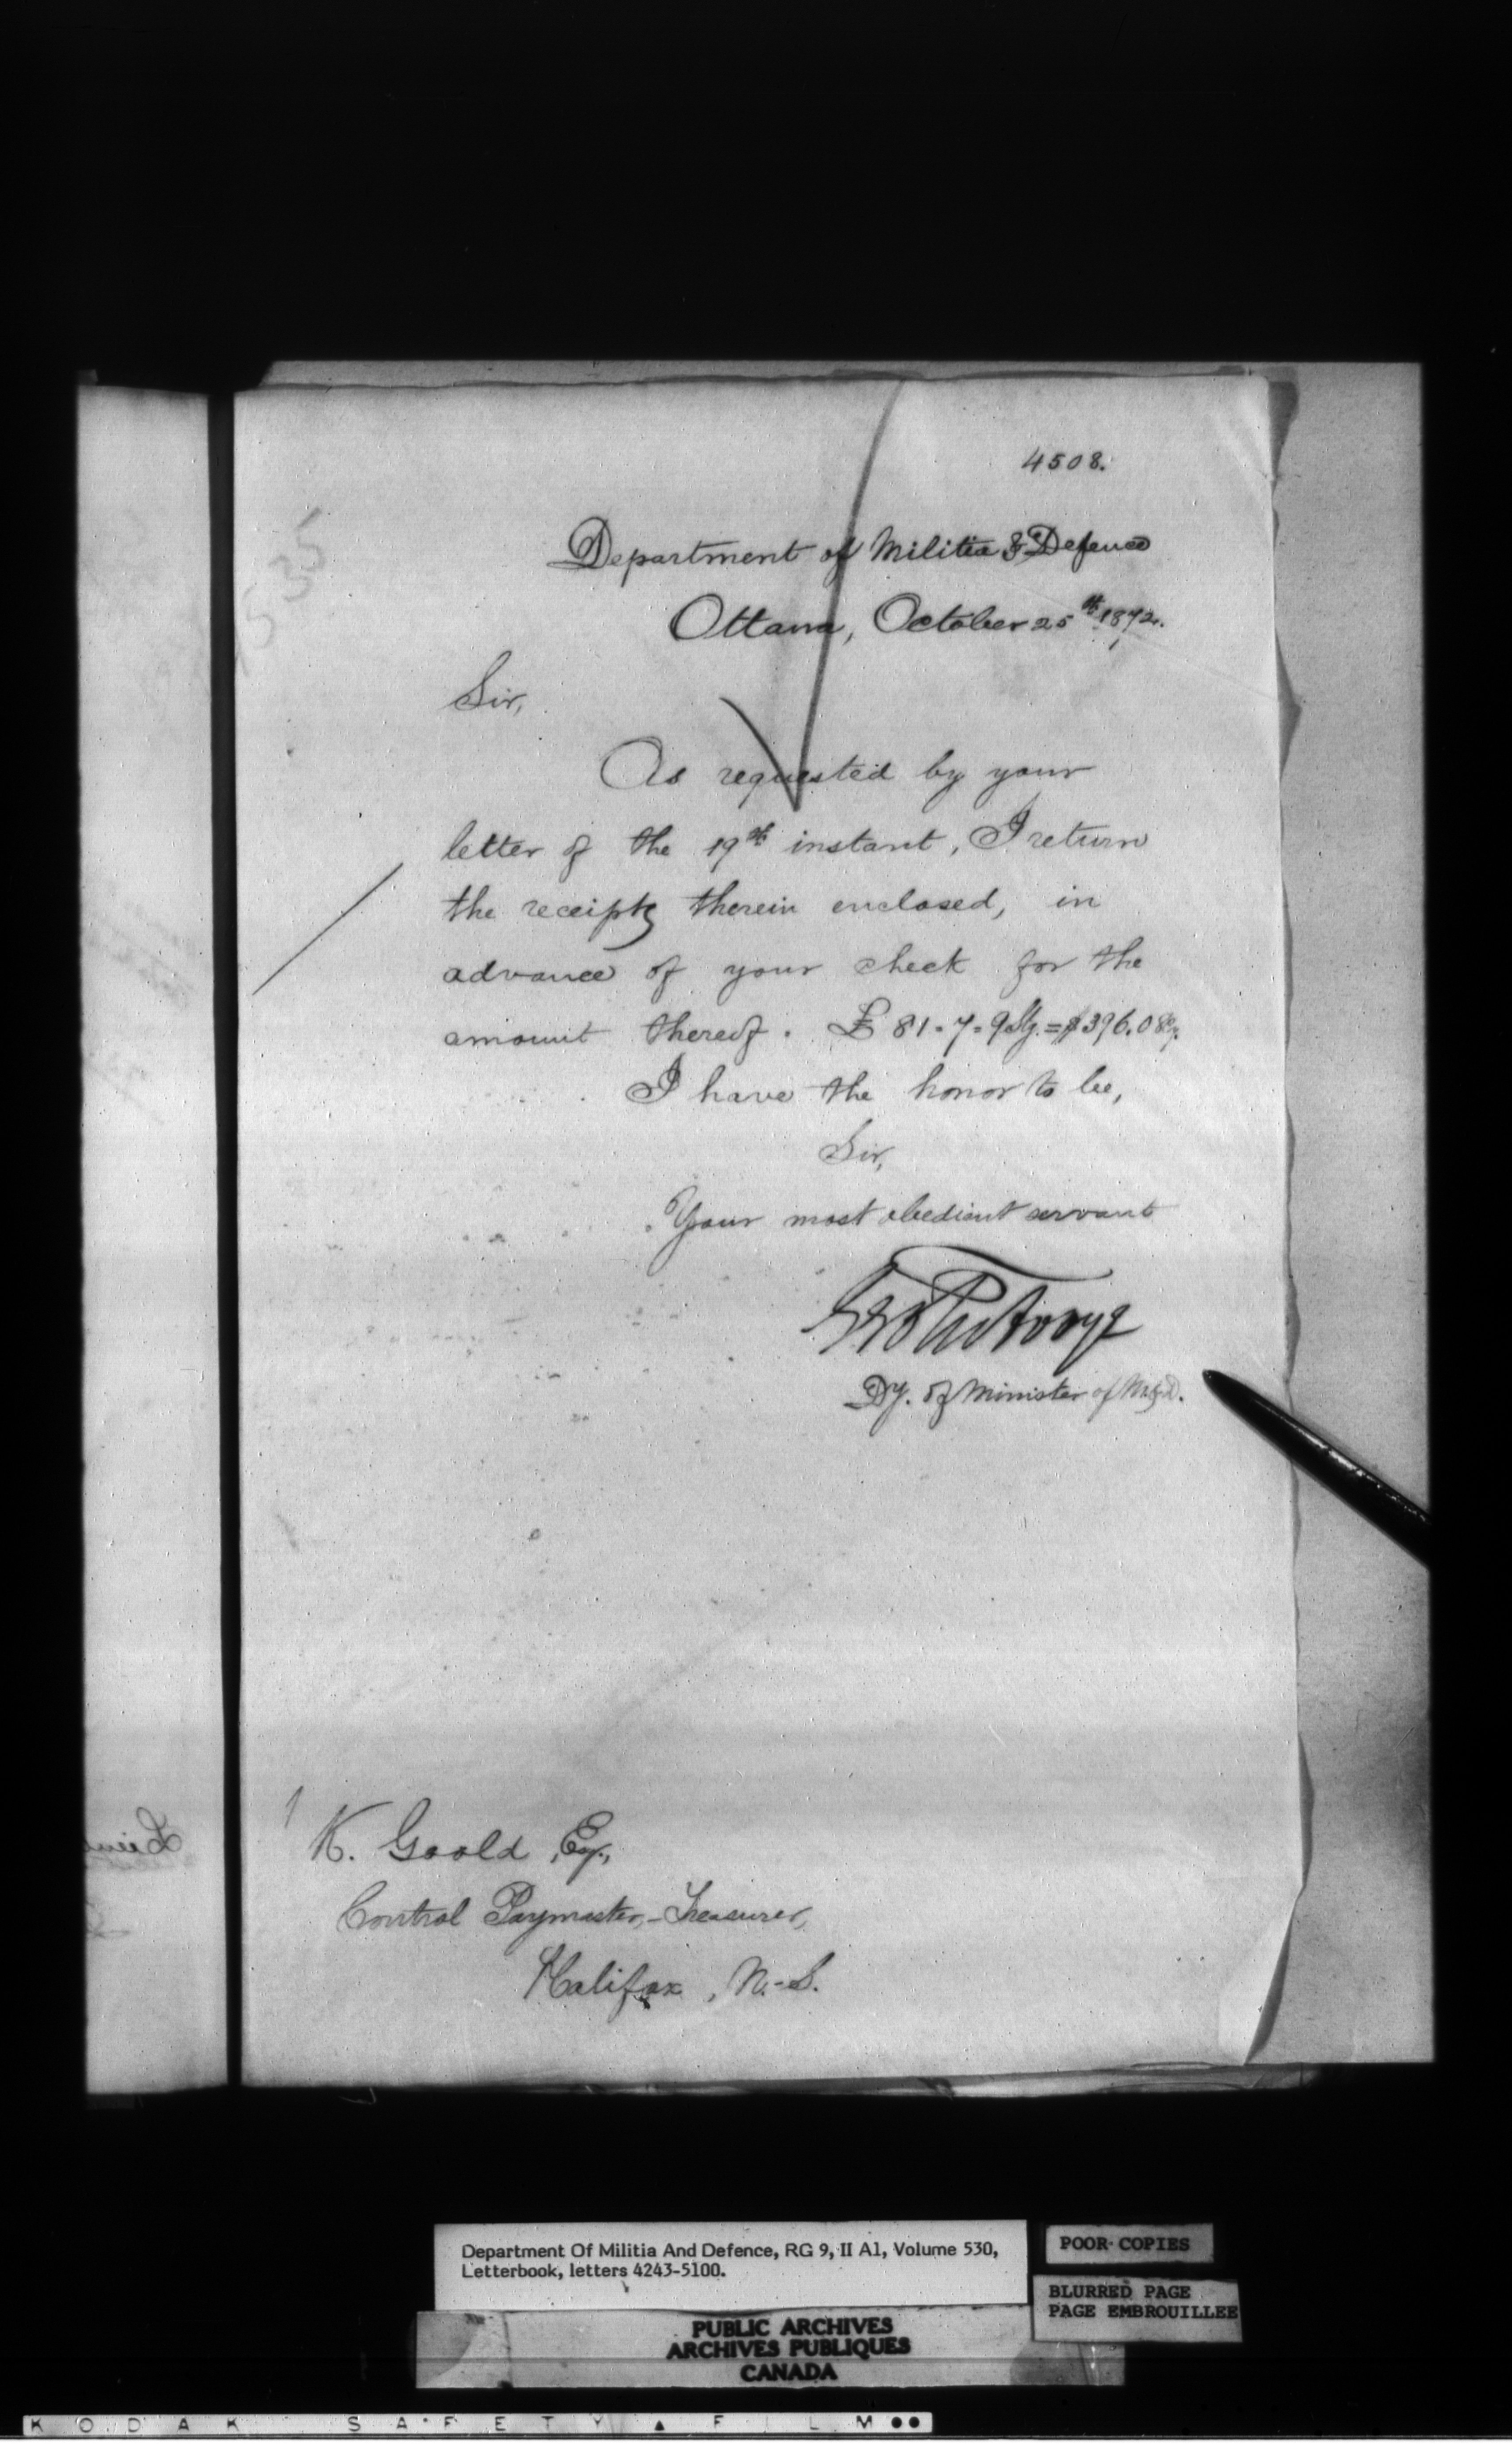 4508.
Department of Militia & Defence
Ottawa, October 25th 1872.
Sir,
As requested by your
letter of the 19th instant, I return
the receipts therein enclosed, in
advance of your check for the
amount thereof. £81-7-9 Stg. = $396.08
I have the honor to be,
Sir,
Your most obedient servant
Dy. of Minister of M&D.
K. Goold, Esq.,
Control Paymaster,-Treasurer,
Halifax, N.-S.
35
Department Of Militia And Defence, RG 9, II A1, Volume 530,
Letterbook, letters 4243-5100.
POOR COPIES
BLURRED PAGE
PAGE EMBROUILLEE
PUBLIC ARCHIVES
ARCHIVES PUBLIQUES
CANADA
KODAK SAFETY ▲ FILM ●●